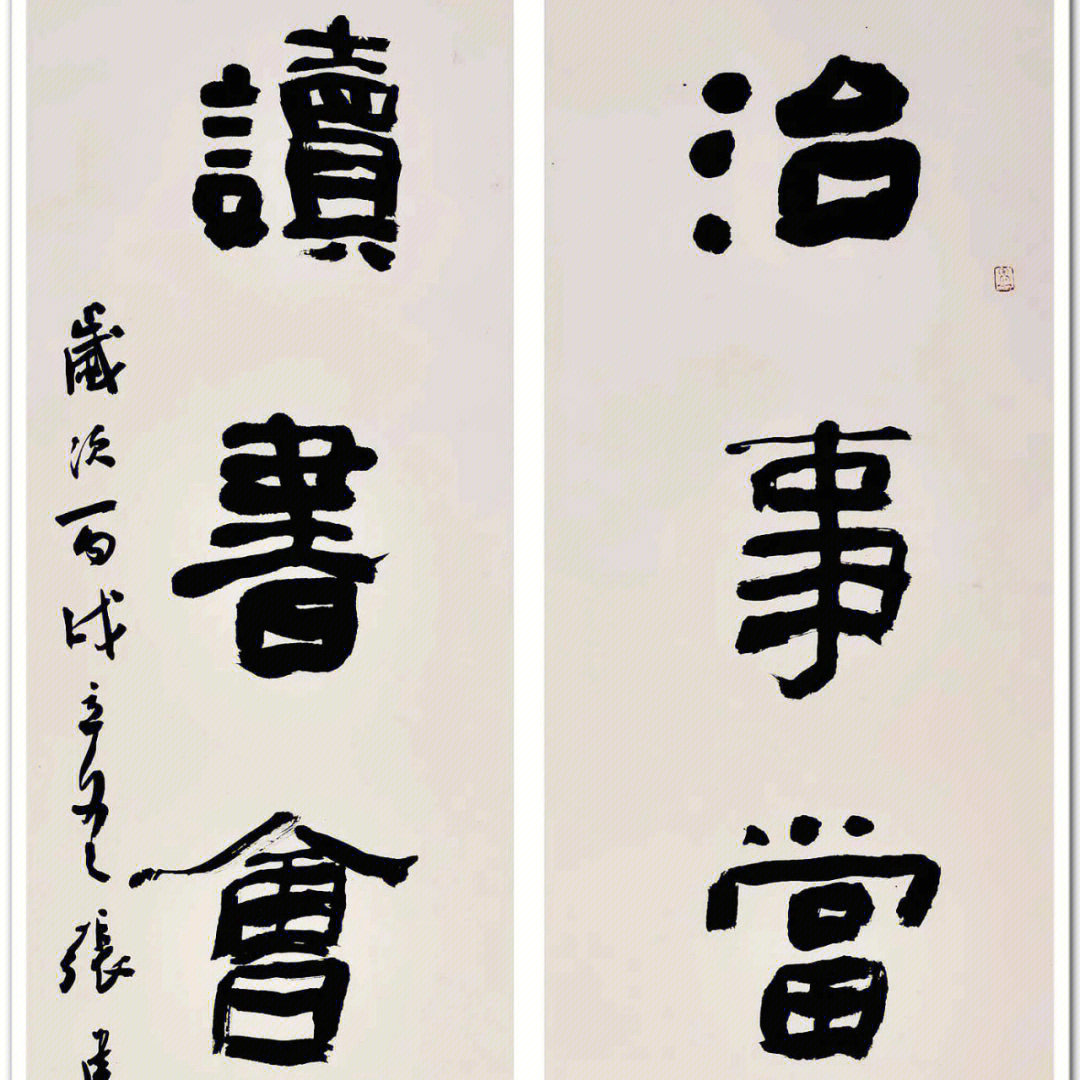 治事當
讀書會
歲次丙戌立 張